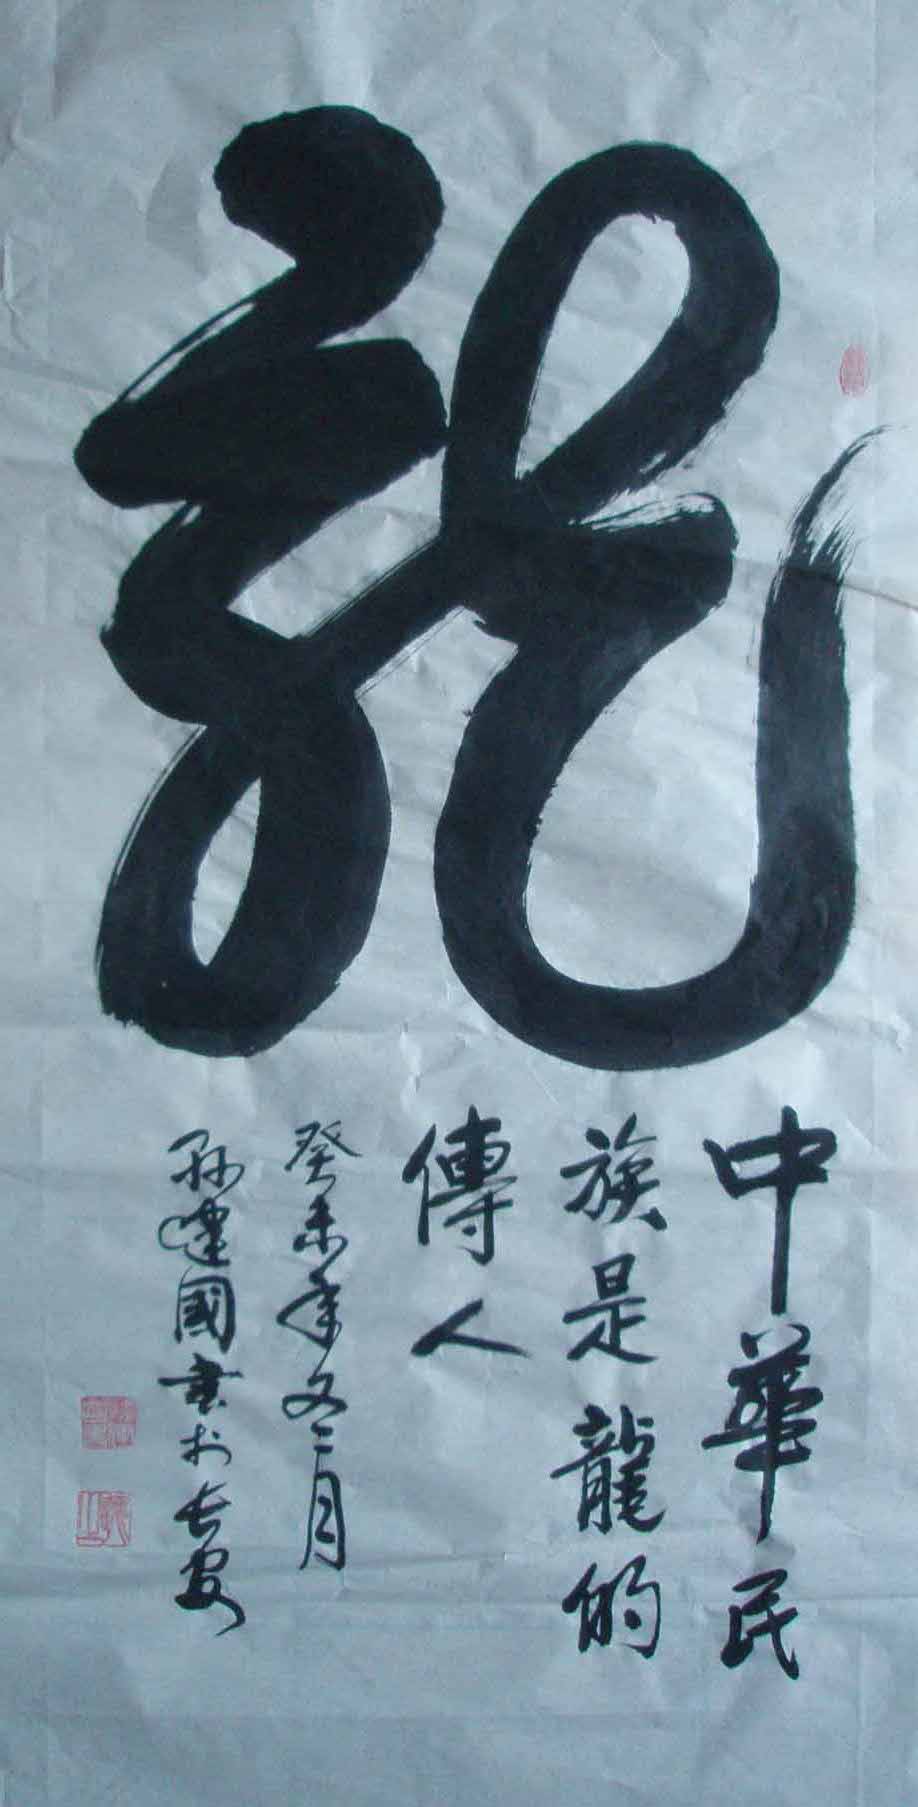 龍
中華民
族是龍的
傳人
癸未年冬月
孫建國書於長安